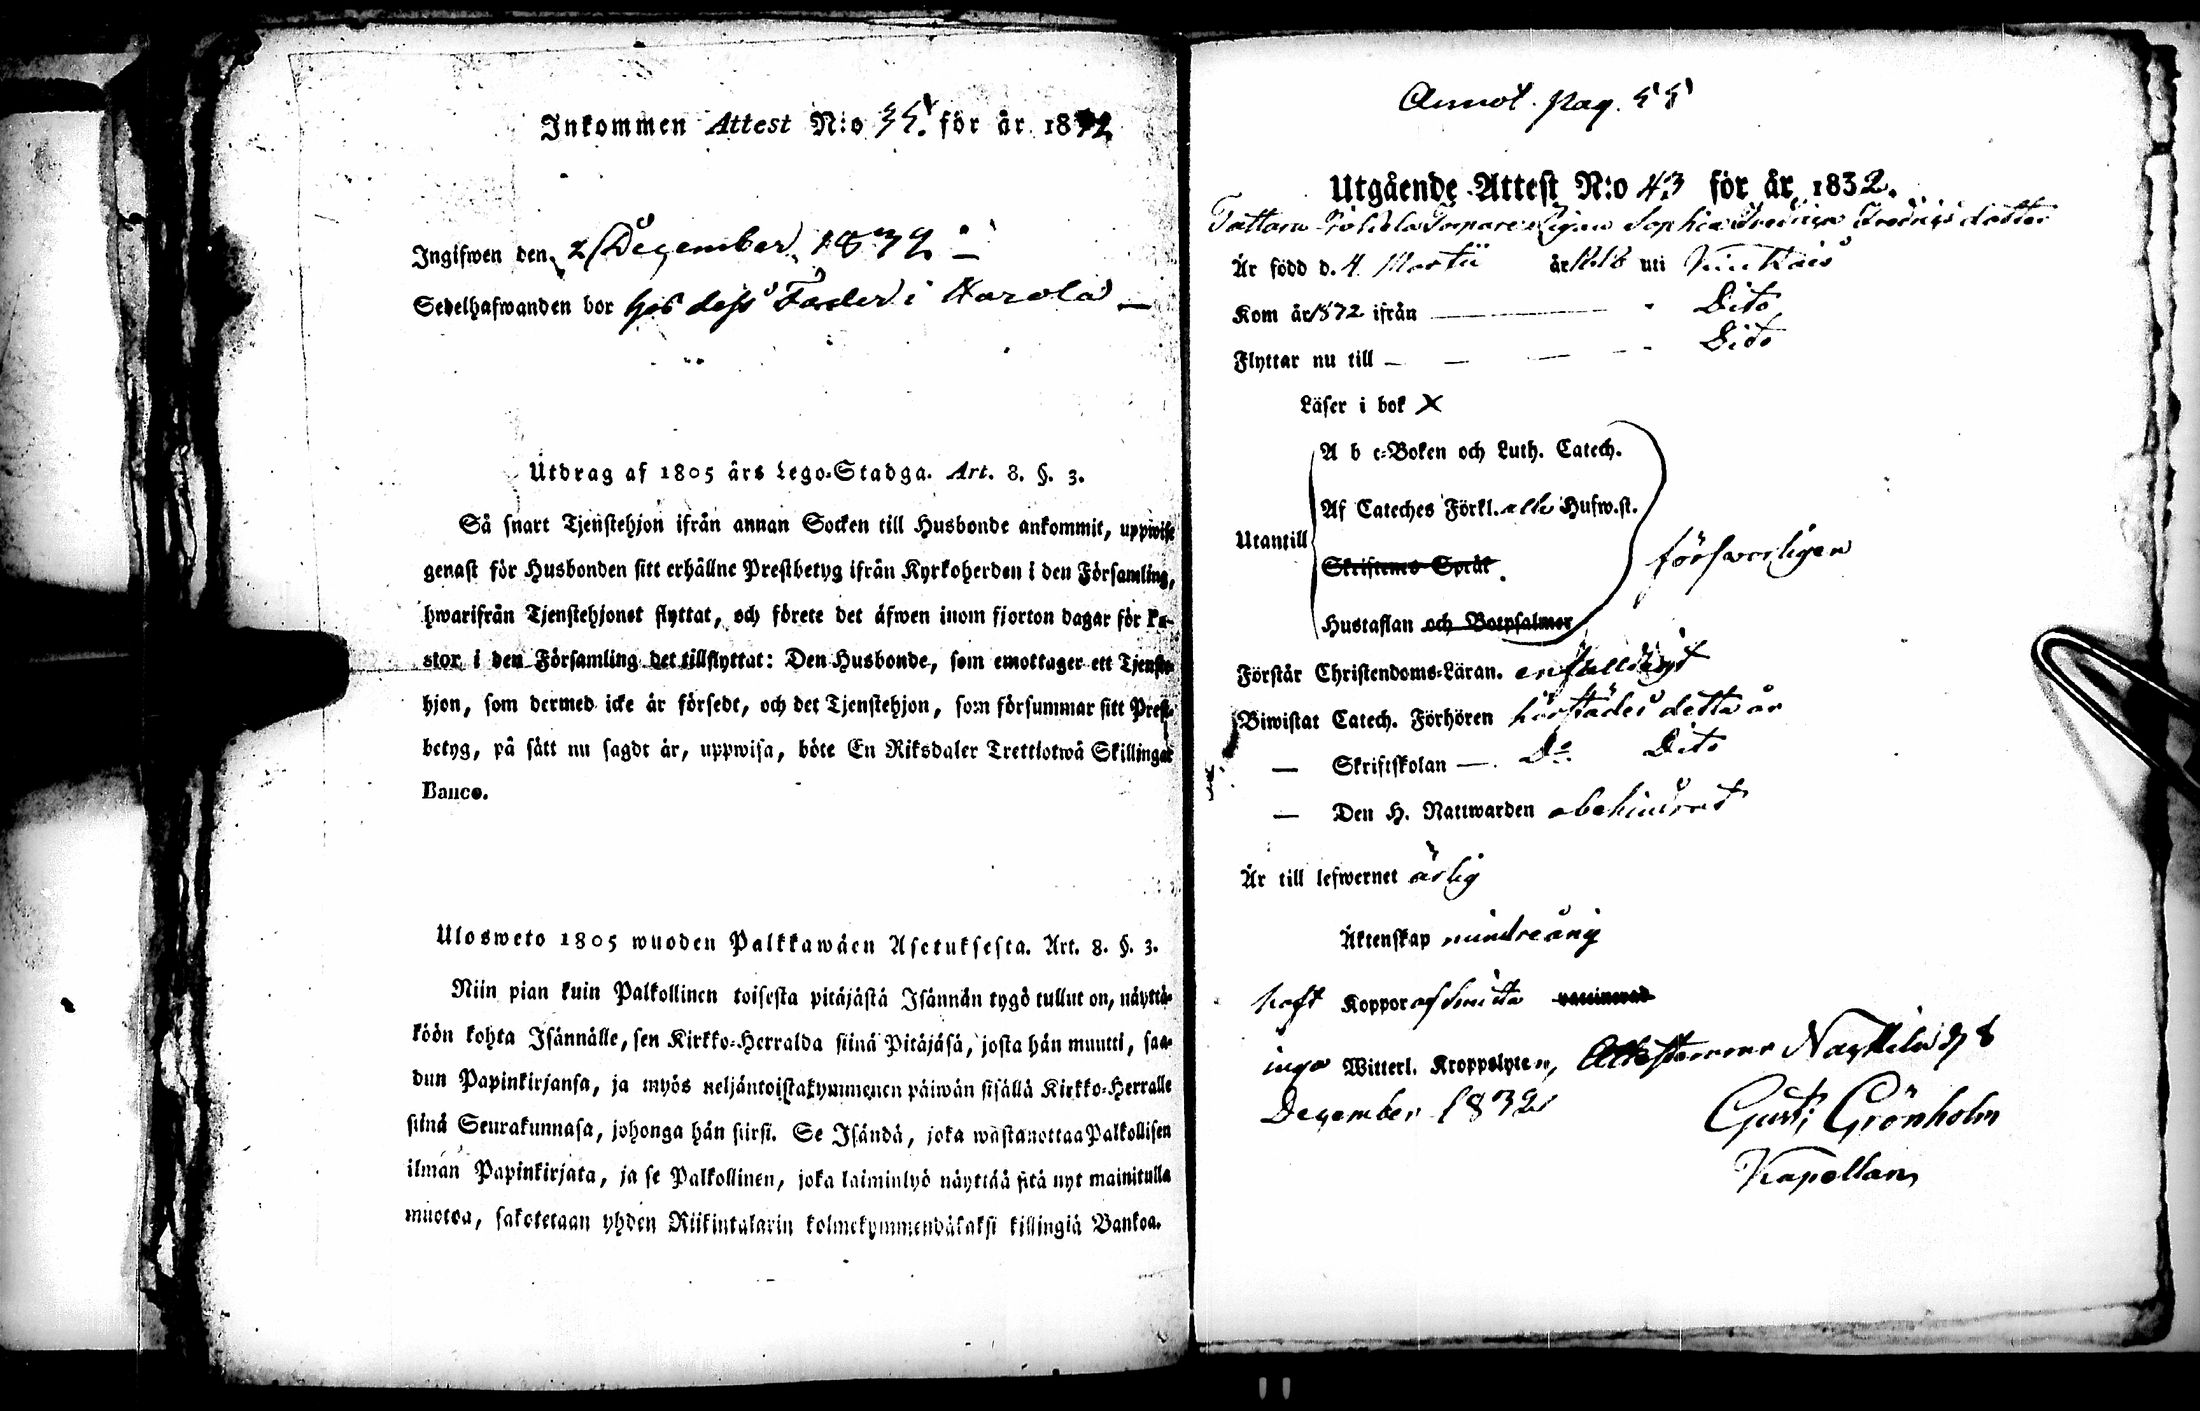 Inkommen Attest N:o 35. för år 1832
Ingifwen den 2 December 1832
Sedelhafwanden bor hos dess Fader i Harola
Utdrag af 1805 års Lego-Stadga. Art. 8. §. 3.
Så snart Tjenstehjon ifrån annan Socken till Husbonde ankommit, uppwise
genast för Husbonden sitt erhållne Prestbetyg ifrån Kyrkoherden i den Församling,
hwarifrån Tjenstehjonet flyttat, och förete det äfwen inom fjorton dagar för Pa-
stor i den Församling det tillflyttat: Den Husbonde, som emottager ett Tjenste-
hjon, som dermed icke är försedt, och det Tjenstehjon, som försummar sitt Prest-
betyg, på sätt nu sagdt är, uppwisa, böte En Riksdaler Trettiotwå Skillingar
Banco.
Ulosweto 1805 wuoden Palkkawäen Asetuksesta. Art. 8. §. 3.
Niin pian kuin Palkollinen toisesta pitäjästä Isännän tygö tullut on, näyttä-
köön kohta Isännälle, sen Kirkko-Herralda siinä Pitäjäsä, josta hän muutti, saa-
dun Papinkirjansa, ja myös neljäntoistakymmenen päiwän sisällä Kirkko-Herralle
siinä Seurakunnasa, johonga hän siirsi. Se Isändä, joka wastanottaa Palkollisen
ilman Papinkirjata, ja se Palkollinen, joka laiminlyö näyttää sitä nyt mainitulla
muotoa, sakotetaan yhden Riikintalarin kolmekymmendäkaksi killingiä Bankoa.
Annot. pag. 55
Utgående Attest N:o 43 för år 1832.
Sophia Fredrica Fredricsdotter
Är född d. 4 Martii år 1818 uti
Kom år 1832 ifrån Dito
Flyttar nu till Dito
Läser i bok X
A b c-Boken och Luth. Catech.
Af Cateches Förkl. alla Hufw.st.
Utantill
Skriftenes Språk försvarligen
Hustaflan och Botpsalmer
Förstår Christendoms-Läran. enfalldigt
Biwistat Catech. Förhören härstädes detta år
— Skriftskolan — Do Dito
— Den H. Nattwarden obehindrat
Är till lefwernet ärlig
Äktenskap mindreårig
haft Koppor vaccinerad
inga Witterl. Kroppslyten, Attesterar Nastola d. 8
December 1832
Gust: Grönholm
Kapellan